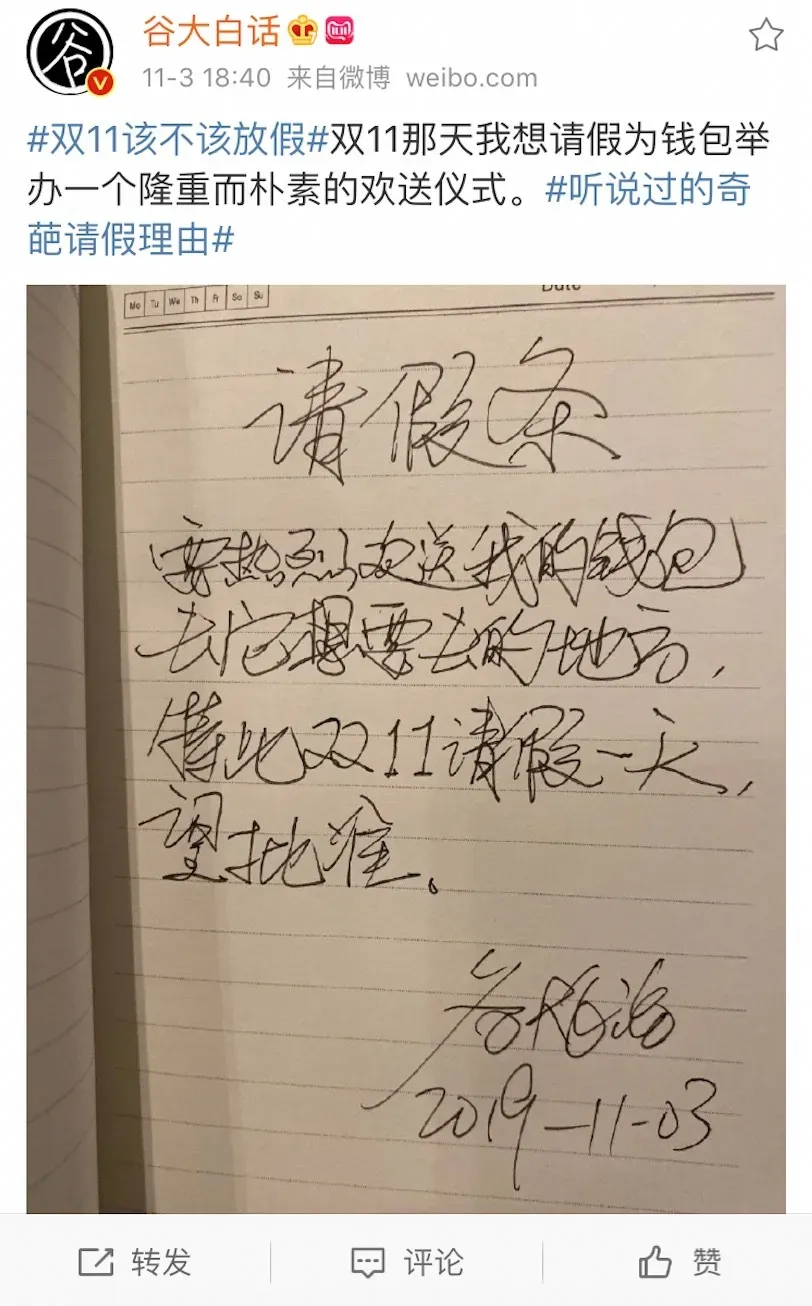 谷大白话
11-3 18:40 来自微博 weibo.com
#双11该不该放假#双11那天我想请假为钱包举
办一个隆重而朴素的欢送仪式。#听说过的奇
葩请假理由#
Mo Tu We Th Fr Sa Su
Date
请假条
要热烈欢送我的钱包
去它想要去的地方，
特此双11请假一天，
望批准。
谷大白话
2019-11-03
转发 评论 赞